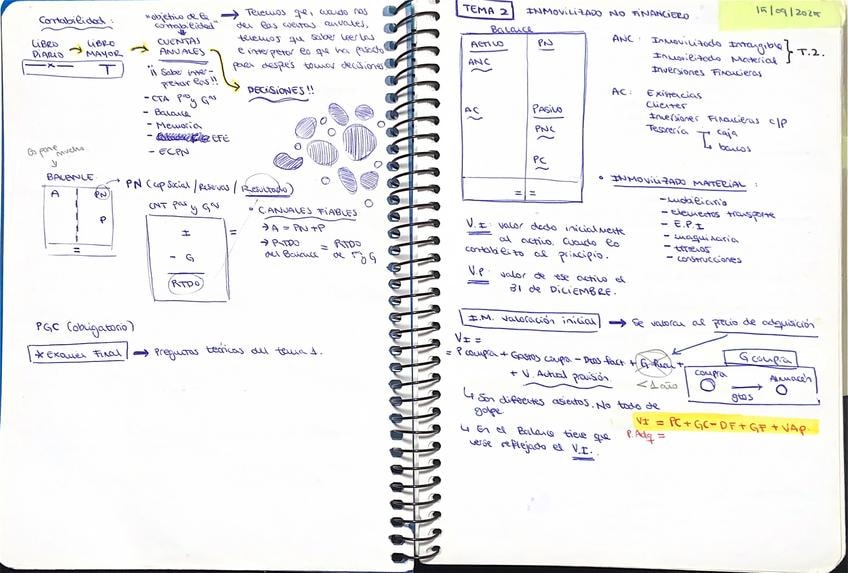 Contabilidad:
"objetivo de la contabilidad"
Tenemos que, cuando nos
den las cuentas anuales,
tenemos que saber leerlas
e interpretar lo que ha pasado
para después tomar decisiones
DECISIONES!!
LIBRO DIARIO
LIBRO MAYOR
CUENTAS ANUALES
¡¡ Saber interpretarlas!!
- CTA Pªˢ y Gªˢ
- Balance
- Memoria
- EFE
- ECPN
BALANCE
A
PN
P
=
PN (Cap Social / Reservas / Resultado)
CNT Pªˢ y Gªˢ
I
- G
RTDO
=
• C. ANUALES FIABLES
→ A = PN + P
→ RTDO del Balance = RTDO de P y G
PGC (obligatorio)
* Examen Final → Preguntas teóricas del tema 1.
TEMA 2
INMOVILIZADO NO FINANCIERO
15/09/2025
Balance
ACTIVO
PN
ANC
AC
PASIVO
PNC
PC
= =
ANC: Inmovilizado Intangible
Inmovilizado Material
Inversiones Financieras
T.2.
AC: Existencias
Clientes
Inversiones Financieras c/P
Tesorería
caja
bancos
• INMOVILIZADO MATERIAL:
- mobiliario
- elementos transporte
- E.P.I
- maquinaria
- terrenos
- construcciones
V.I: valor dado inicialmente
al activo. Cuando lo
contabilizo al principio.
V.P: valor de ese activo el
31 de DICIEMBRE.
I.M. valoración inicial → Se valoran al precio de adquisición
VI =
= P compra + Gastos compra - Dtos fact + G. Finan +
+ V. Actual provisión
< 1 año
G compra
compra
Almacén
gtos
↳ Son diferentes asientos. No todo de
golpe.
VI = PC + GC - DF + GF + VAP
P. Adq =
↳ En el Balance tiene que
verse reflejado el V.I.